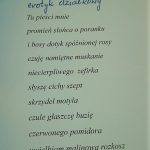 erotyk działkowy
Tu pieści mnie
promień słońca o poranku
i bosy dotyk spóźnionej rosy
czuję namiętne muskanie
niecierpliwego zefirka
słyszę cichy szept
skrzydeł motyla
czule głaszczę buzię
czerwonego pomidora
uwielbiam malinową rozkosz